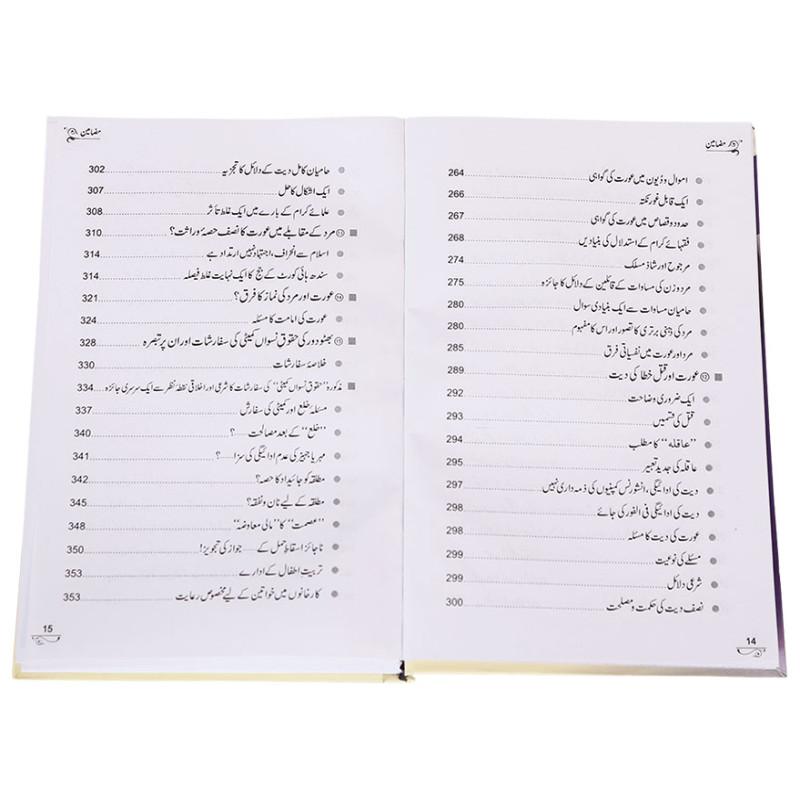 مضامین
اموال و دیون میں عورت کی گواہی 264
ایک قابل غور نکتہ 266
حدود و قصاص میں عورت کی گواہی 267
فقہائے کرام کے استدلال کی بنیادیں 268
مرجوح اور شاذ مسلک 274
مرد و زن کی مساوات کے قائلین کے دلائل کا جائزہ 275
حامیان مساوات سے ایک بنیادی سوال 280
مرد کی دینی برتری کا تصور اور اس کا مفہوم 280
مرد اور عورت میں نفسیاتی فرق 285
⑫ عورت اور قتل خطا کی دیت 289
ایک ضروری وضاحت 292
قتل کی قسمیں 293
”عاقلہ“ کا مطلب 294
عاقلہ کی جدید تعبیر 295
دیت کی ادائیگی، انشورنس کمپنیوں کی ذمہ داری نہیں 297
دیت کی ادائیگی فی الفور کی جائے 298
عورت کی دیت کا مسئلہ 298
مسئلے کی نوعیت 299
شرعی دلائل 299
نصف دیت کی حکمت و مصلحت 300
14
مضامین
حامیان کامل دیت کے دلائل کا تجزیہ 302
ایک اشکال کا حل 307
علمائے کرام کے بارے میں ایک غلط تأثر 308
⑬ مرد کے مقابلے میں عورت کا نصف حصۂ وراثت؟ 310
اسلام سے انحراف، اجتہاد نہیں ارتداد ہے 314
سندھ ہائی کورٹ کے جج کا ایک نہایت غلط فیصلہ 314
⑭ عورت اور مرد کی نماز کا فرق؟ 321
عورت کی امامت کا مسئلہ 324
⑮ بھٹو دور کی حقوق نسواں کمیٹی کی سفارشات اور ان پر تبصرہ 328
خلاصۂ سفارشات 330
مذکورہ ”حقوق نسواں کمیٹی“ کی سفارشات کا شرعی اور اخلاقی نقطۂ نظر سے ایک سرسری جائزہ 334
مسئلۂ خلع اور کمیٹی کی سفارش 337
”خلع“ کے بعد مصالحت ......؟ 340
مہر یا جہیز کی عدم ادائیگی کی سزا ......؟ 341
مطلقہ کو جائیداد کا حصہ؟ 342
مطلقہ کے لیے نان و نفقہ؟ 345
”عصمت“ کا ”مالی معاوضہ“ 348
ناجائز اسقاط حمل کے ...... جواز کی تجویز! 350
تربیت اطفال کے ادارے 353
کارخانوں میں خواتین کے لیے مخصوص رعایت 353
15